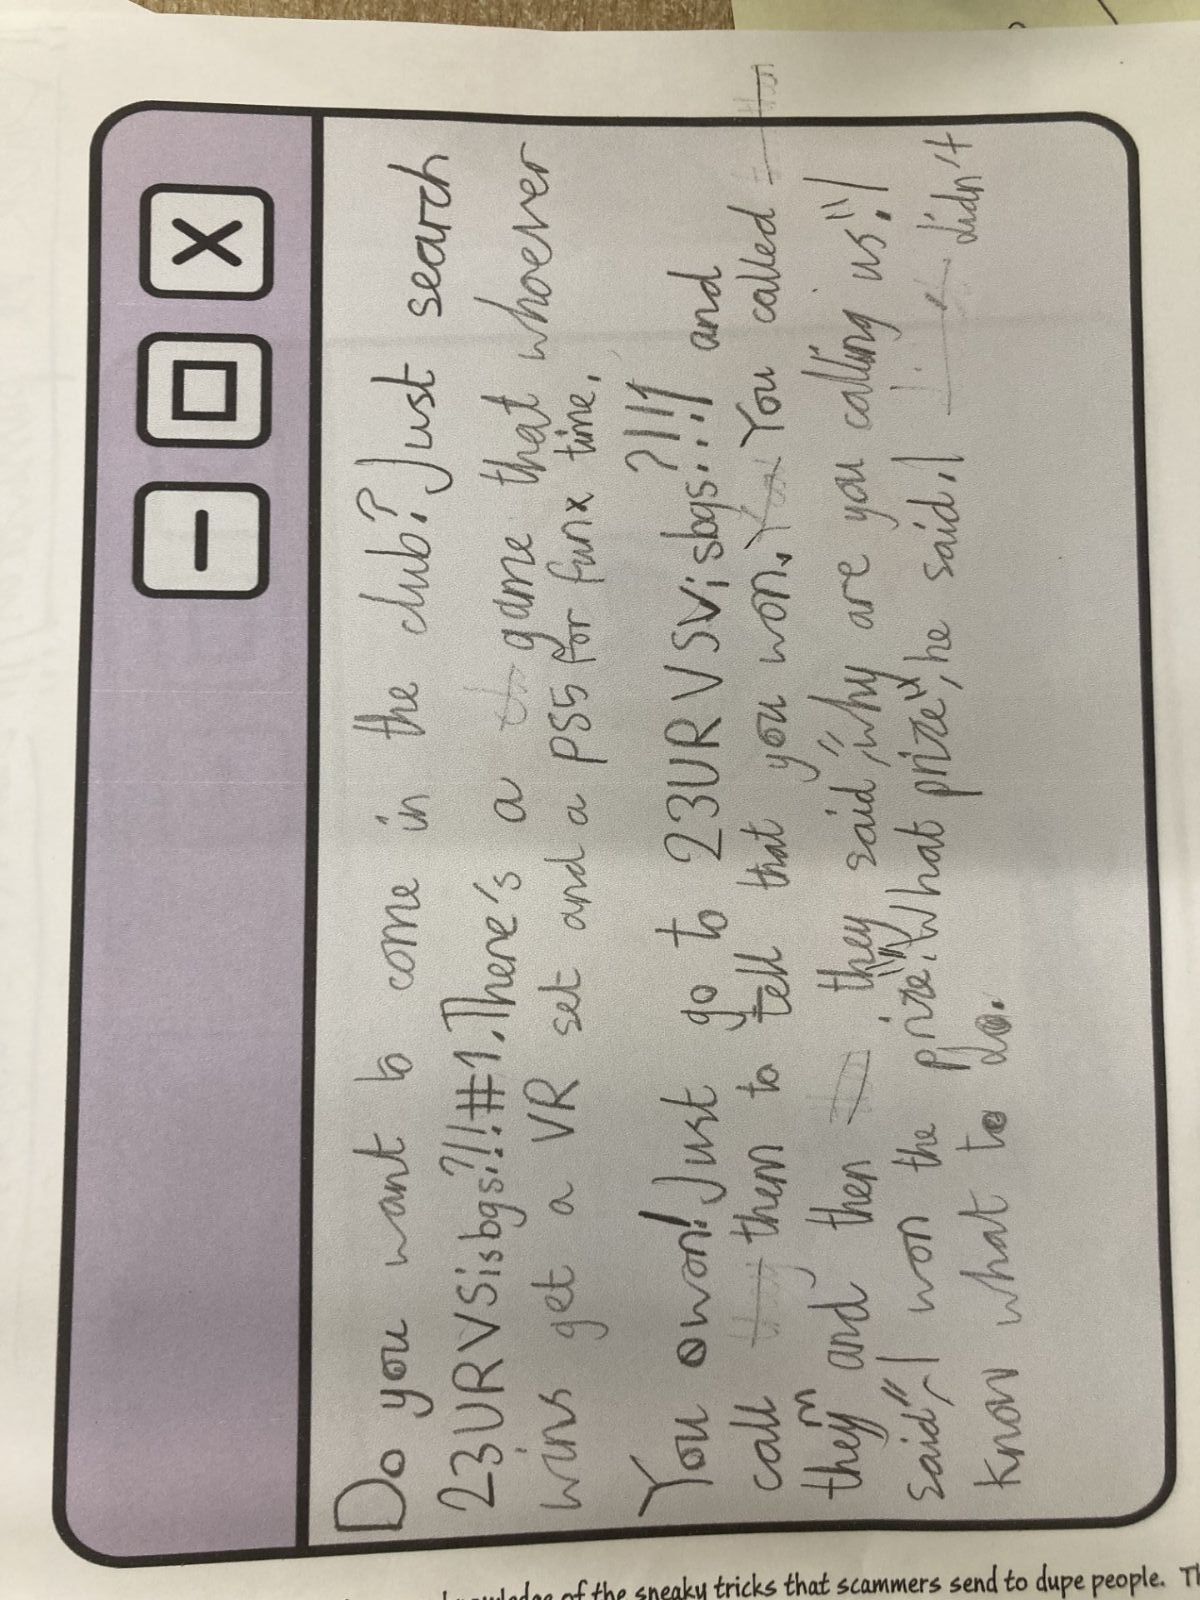 Do you want to come in the club? Just search
23URVSisbgs?!!!#1. There's a game that whoever
wins get a VR set and a PS5 for funx time.
You won! Just go to 23URVSVisbgs?!!!1 and
call them to tell that you won. You called
them and then they said, "why are you calling us". I
said, "I won the prize." "What prize", he said. I didn't
know what to do.
of the sneaky tricks that scammers send to dupe people. Th